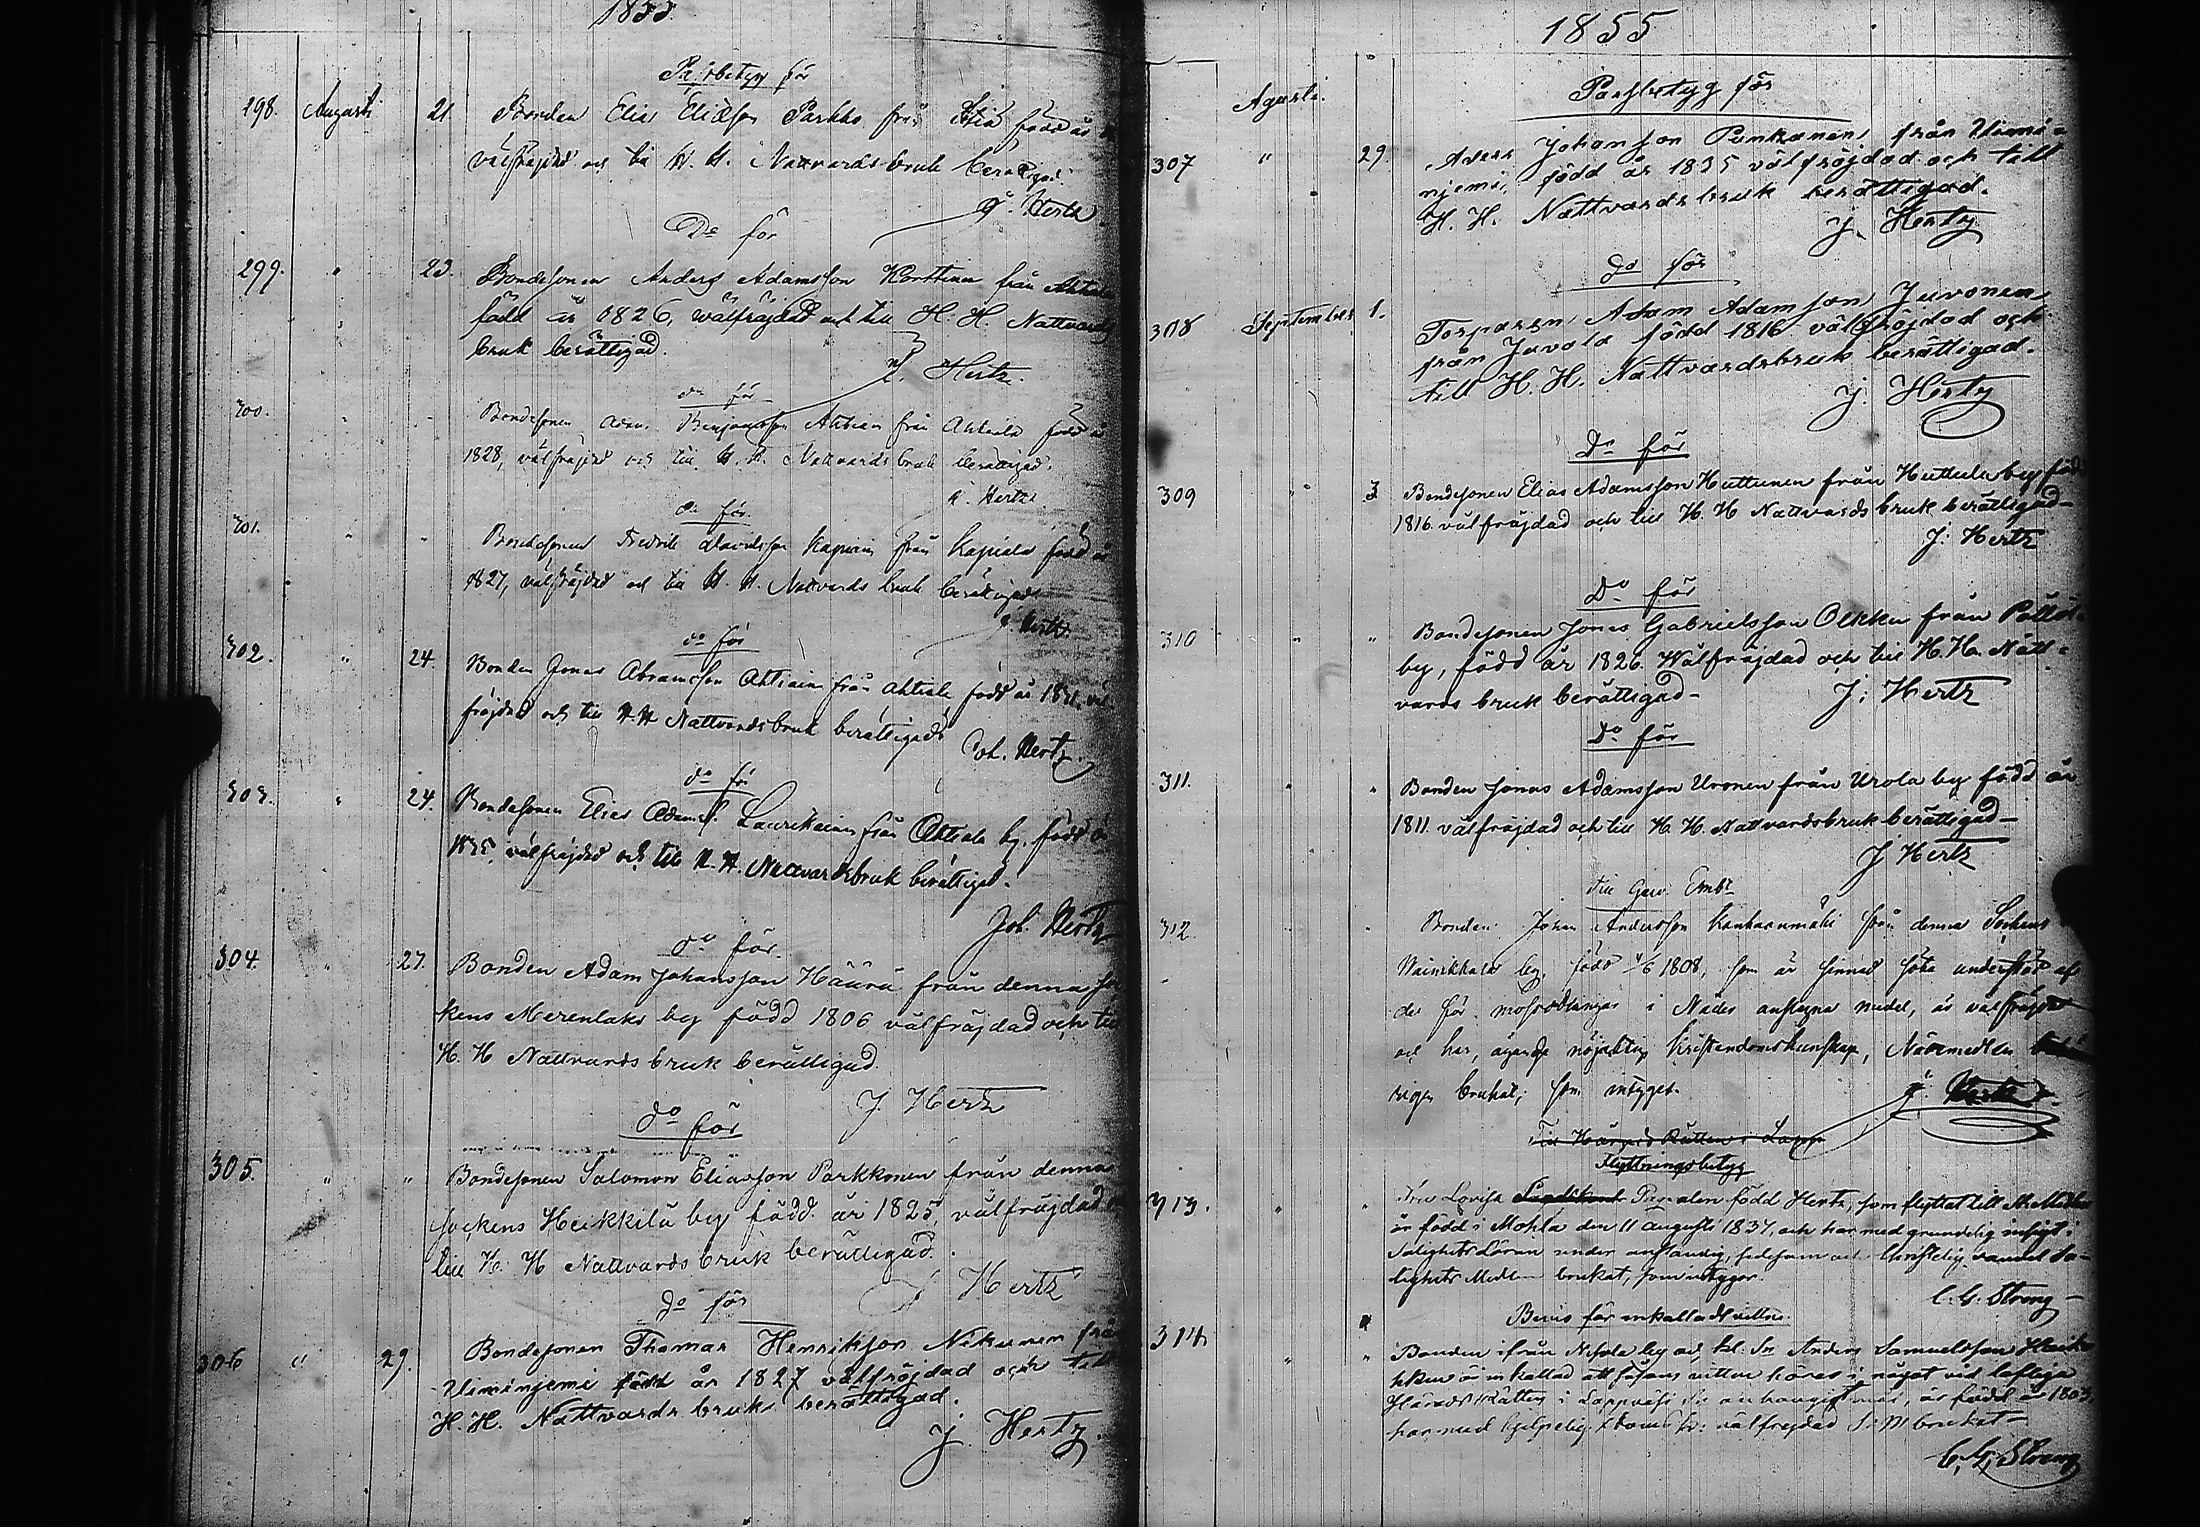 1855.
Passbetyg för
298. Augusti 21. Bonden Elias Eliasson Parkko från född år
välfräjdad och till H. H. Nattvards bruk berättigad.
J. Hertz
Do för
299. " 23. Bondesonen Anders Adamsson Korttinen från Ahtiala
född år 1826, wälfräjdad och till H. H. Nattvards
bruk berättigad.
J. Hertz.
do för
300. " " Bondesonen Adam Benjamsson Ahtiain från Ahtiala född år
1828, välfräjdad och till H. H. Nattvards bruk berättigad.
J. Hertz
do för
301. " " Bondesonen Fredrik Davidsson Kapiain från Kapiala född år
1827, välfräjdad och till H. H. Nattvards bruk berättigad
J. Hertz.
do för
302. " 24. Bonden Jonas Abramsson Ahtiain från Ahtiala född år 1821, väl-
fräjdad och till H. H Nattvardsbruk berättigad
Joh. Hertz.
do för
303. " 24. Bondesonen Elias Adamss. Laurikain från Ahtiala by. född år
1835, välfräjdad och till H. H. Nattvardsbruk berättigad.
Joh. Hertz
do för.
304. " 27. Bonden Adam Johansson Häärä från denna So
kens Merenlaks by född 1806 välfräjdad och till
H. H Nattvards bruk berättigad.
J Hertz
do för
305. " " Bondesonen Salomon Eliasson Parkkonen från denna
sockens Heikkilä by född år 1825, välfräjdad o
till H. H Nattvards bruk berättigad.
J Hertz
do för
306 " 29. Bondesonen Thomas Henriksson Nikunen frå
Uiminjemi född år 1827 välfröjdad och till
H. H. Nattvards bruk berättigad.
J. Hertz.
1855
Passbetyg för
Agusti.
307 " 29. Anders Johansson Punkanen från Uimi-
njemi, född år 1835 välfröjdad och till
H. H. Nattvards bruk berättigad.
J. Hertz
do för
308 September 1. Torparen Adam Adamsson Juvonen
från Juvola född 1816 välfröjdad och
till H. H. Nattvardsbruk berättigad.
J. Hertz
Do för
309 " 3 Bondesonen Elias Adamsson Huttunen från Huttula by född
1816 välfräjdad och till H. H Nattvards bruk berättigad—
J. Hertz
Do för
310 " " Bondesonen Jonas Gabrielsson Olkku från
by, född år 1826. Wälfräjdad och till H. H. Natt-
vards bruk berättigad—
J: Hertz
Do för
311. " " Bonden Jonas Adamsson Uronen från Urola by född år
1811. välfräjdad och till H. H. Nattvardsbruk berättigad—
J Hertz
Till Guv. Embt
312 Bonden Johan Andersson Kankaanmäki från denna Sockens
Wainikkala by, född 4/6 1808, som är sinnad söka understöd af
de för mossodlingar i Nåder anslagna medel, är välfräjdad
och har, ägande nöjaktig Kristendomskunskap, Nådemedlen
brukat; som intygas.
J. Hertz
Till Härads Rätten i Lapp
Flyttningsbetyg
313. " Fru Lovisa Pesonen född Hertz, som flyttat till
är född i Mohla den 11 Augusti 1837, och har med grundelig insigt i
Salighets Läran under anständig, sedesam och Christelig vandel Sa-
lighets Medlen brukat, som intygar.
C. G. Strong
Bevis för inkallad vittne
314 " " Bonden ifrån by Anders Samuelsson
är inkallad att såsom vittne höras i något vid loflige
Härads Rätten i Lappvesi mål, är född år 1803,
har med hjelpelig välfrejdad S: M brukat—
C. G. Strong